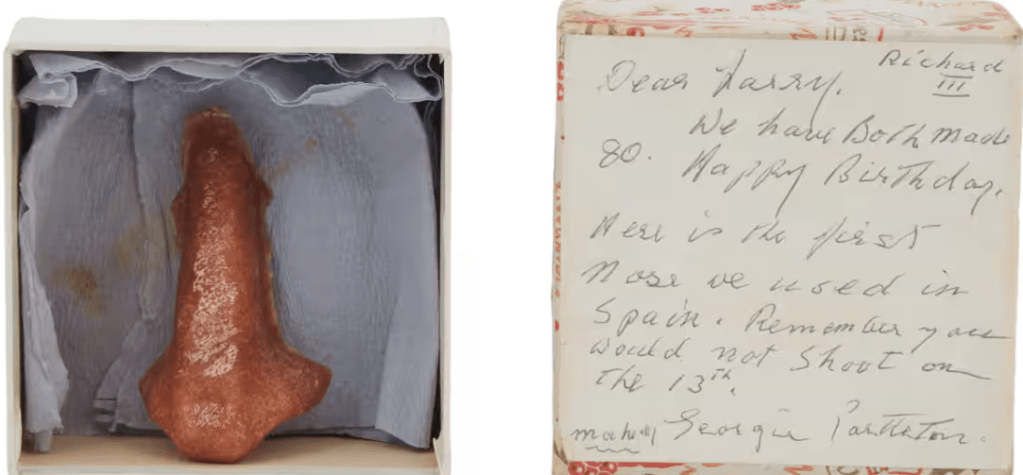 Richard
III
Dear Larry.
We have Both made
80. Happy Birthday.
Here is the first
Nose we used in
Spain. Remember you
would not Shoot on
the 13th.
George Partleton.